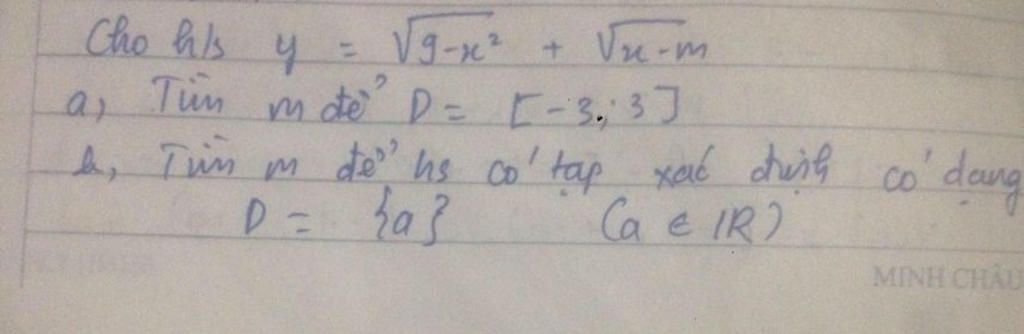 Cho h/s y = √(9-x²) + √(x-m)
a, Tìm m để D = [-3; 3]
b, Tìm m để hs có tập xác định có dạng
D = {a} (a ∈ IR)
MINH CHÂU